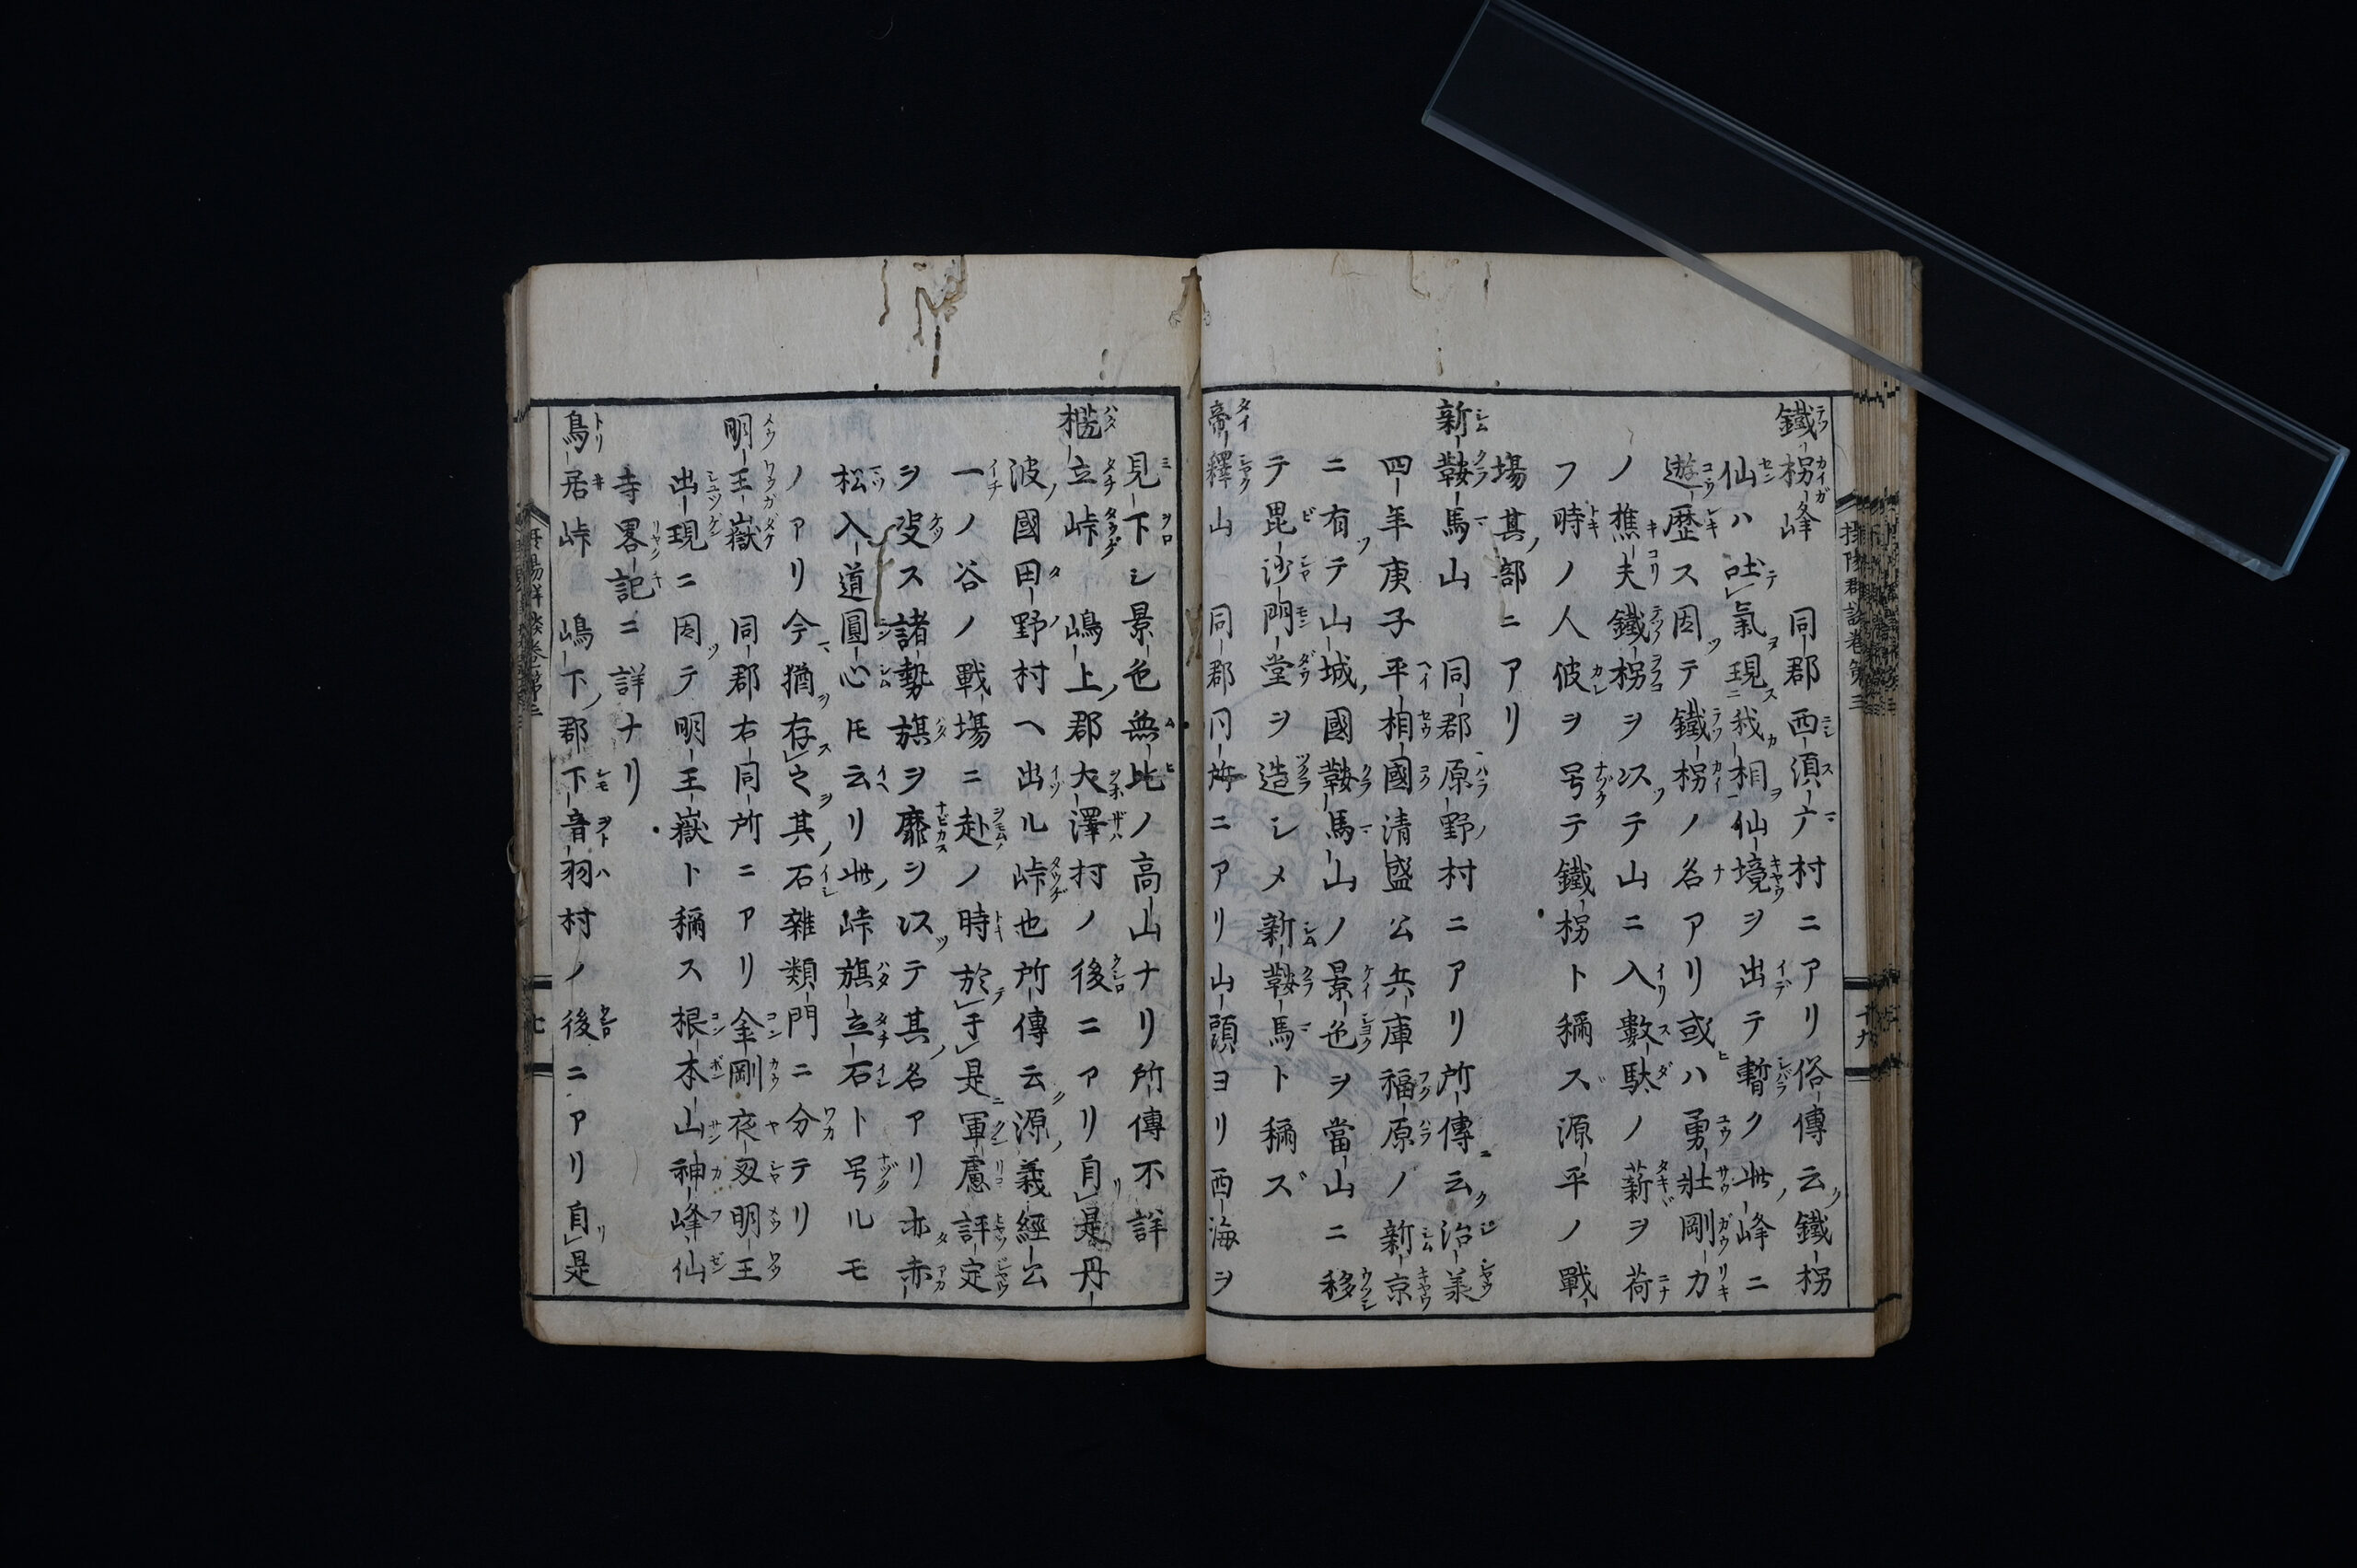 鐵拐峰 同郡西須广村ニアリ俗傳云鐵拐
仙ハ吐氣現我相仙境ヲ出テ暫ク此峰ニ
遊歴ス因テ鐵拐ノ名アリ或ハ勇壯剛力
ノ樵夫鐵拐ヲ以テ山ニ入數駄ノ薪ヲ荷
フ時ノ人彼ヲ号テ鐵拐ト稱ス源平ノ戰
場其部ニアリ
新鞍馬山 同郡原野村ニアリ所傳云治承
四年庚子平相國清盛公兵庫福原ノ新京
ニ有テ山城國鞍馬山ノ景色ヲ當山ニ移
テ毘沙門堂ヲ造シメ新鞍馬ト稱ズ
帝釋山 同郡同所ニアリ山頭ヨリ西海ヲ
見下シ景色無比ノ高山ナリ所傳不詳
立峠 嶋上郡大澤村ノ後ニアリ自是丹
波國田野村ヘ出ル峠也所傳云源義經公
一ノ谷ノ戰場ニ赴ノ時於于是軍慮評定
ヲ決ス諸勢旗ヲ靡シ以テ其名アリ亦赤
松入道圓心トモ云リ此峠旗立石ト号ルモ
ノアリ今猶存之其石雜類門ニ分テリ
明王嶽 同郡右同所ニアリ金剛夜叉明王
出現ニ因テ明王嶽ト稱ス根本山神峰仙
寺畧記ニ詳ナリ
鳥居峠 嶋下郡下音羽村ノ後ニアリ自是